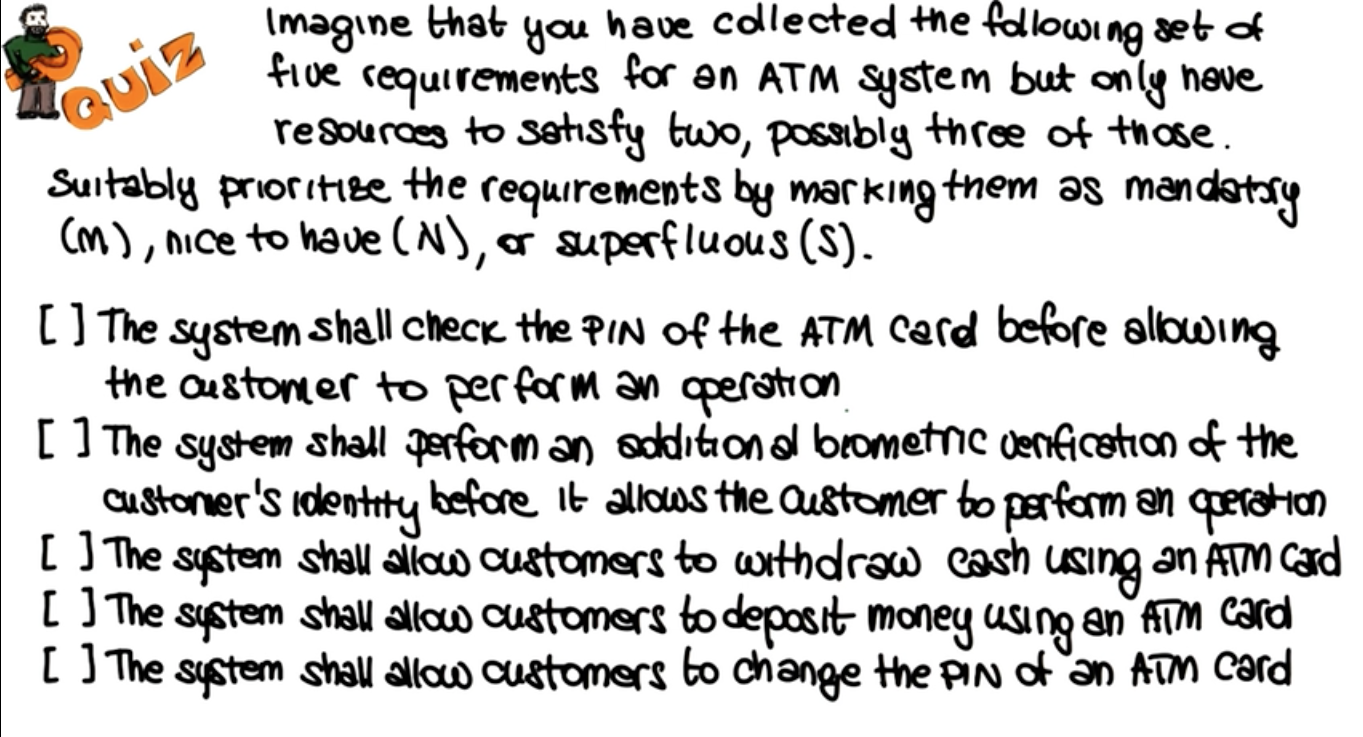 QUIZ
Imagine that you have collected the following set of
five requirements for an ATM system but only have
resources to satisfy two, possibly three of those.
Suitably prioritize the requirements by marking them as mandatory
(M), nice to have (N), or superfluous (S).
[ ] The system shall check the PIN of the ATM card before allowing
the customer to perform an operation
[ ] The system shall perform an additional biometric verification of the
customer's identity before it allows the customer to perform an operation
[ ] The system shall allow customers to withdraw cash using an ATM card
[ ] The system shall allow customers to deposit money using an ATM card
[ ] The system shall allow customers to change the PIN of an ATM card